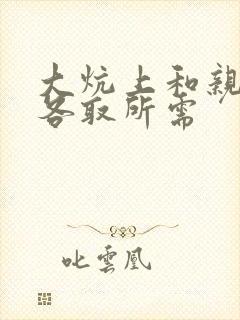 大炕上和親
各取所需
叱雲凰